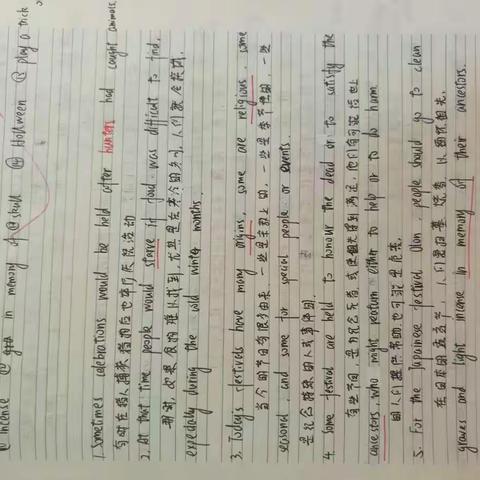 @ incense @ in memory of @ skull @ Holloween @ play a trick
1. Sometimes celebrations would be held after hunters had caught animals.
有时在猎人捕获猎物后也举行庆祝活动
2. At that time people would starve if foud was difficult to find,
那时,如果食物难以找到,尤其是在寒冷的冬月,人们就会挨饿.
expedally during the cold winter months.
3. Today's festivals have many origins, some are religious, some
当今的节日有很多由来,一些是宗教上的,一些是季节性的,一些
seasonal, and some for special people or events.
是纪念特殊的人或事件的.
4. some festival are held to honour the dead or to satisfy the
有些节日,是为纪念死者,或使祖先得到满足,他们有可能返回世上
ancestors, who might peaturn either to help or to do harm.
的人们提供帮助,也可能是危害.
5. For the Japainese festival Obon, people should go to clean
在日本的盂兰节,人们要扫墓、烧香,以缅怀祖先.
graves and light incense in memory of their ancestors.